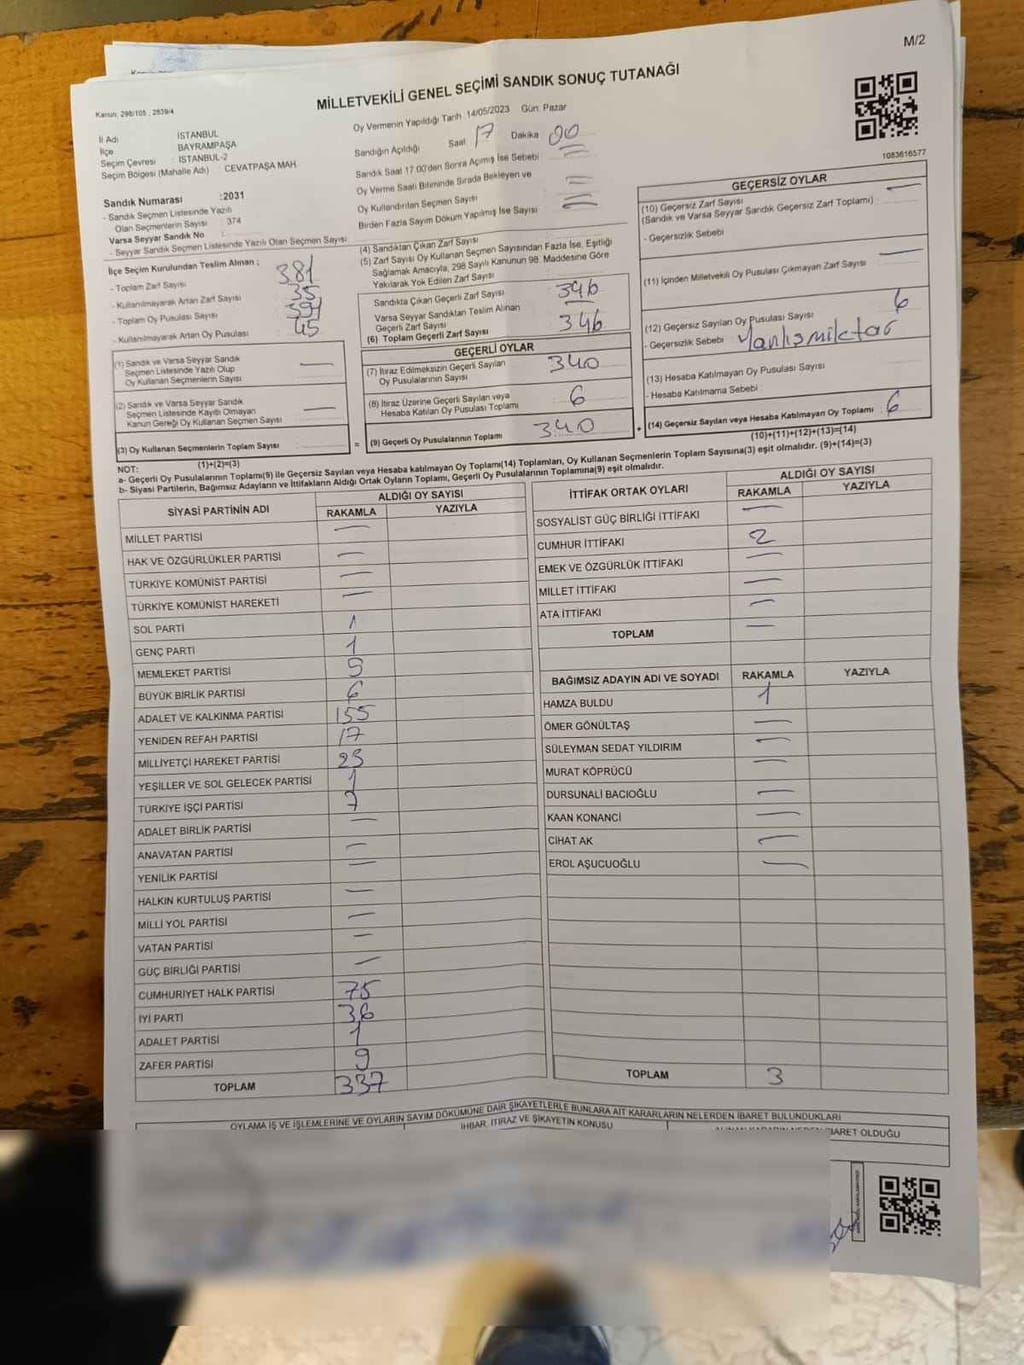 M/2
Kanun: 298/105 , 2839/4
MİLLETVEKİLİ GENEL SEÇİMİ SANDIK SONUÇ TUTANAĞI
İl Adı : İSTANBUL
İlçe BAYRAMPAŞA
Seçim Çevresi : İSTANBUL-2
Seçim Bölgesi (Mahalle Adı) : CEVATPAŞA MAH
Sandık Numarası :2031
- Sandık Seçmen Listesinde Yazılı
Olan Seçmenlerin Sayısı : 374
Varsa Seyyar Sandık No
- Seyyar Sandık Seçmen Listesinde Yazılı Olan Seçmen Sayısı:
İlçe Seçim Kurulundan Teslim Alınan ;
- Toplam Zarf Sayısı 381
- Kullanılmayarak Artan Zarf Sayısı 35
- Toplam Oy Pusulası Sayısı 391
- Kullanılmayarak Artan Oy Pusulası 45
(1) Sandık ve Varsa Seyyar Sandık
Seçmen Listesinde Yazılı Olup
Oy Kullanan Seçmenlerin Sayısı —
(2) Sandık ve Varsa Seyyar Sandık
Seçmen Listesinde Kayıtlı Olmayan
Kanun Gereği Oy Kullanan Seçmen Sayısı —
(3) Oy Kullanan Seçmenlerin Toplam Sayısı
(1)+(2)=(3)
Oy Vermenin Yapıldığı Tarih :14/05/2023 Gün: Pazar
Sandığın Açıldığı Saat 17 Dakika 00
Sandık Saat 17:00'den Sonra Açılmış İse Sebebi
Oy Verme Saati Bitiminde Sırada Bekleyen ve
Oy Kullandırılan Seçmen Sayısı
Birden Fazla Sayım Döküm Yapılmış İse Sayısı
(4) Sandıktan Çıkan Zarf Sayısı
(5) Zarf Sayısı Oy Kullanan Seçmen Sayısından Fazla İse, Eşitliği
Sağlamak Amacıyla, 298 Sayılı Kanunun 98. Maddesine Göre
Yakılarak Yok Edilen Zarf Sayısı
Sandıkta Çıkan Geçerli Zarf Sayısı 346
Varsa Seyyar Sandıktan Teslim Alınan
Geçerli Zarf Sayısı
(6) Toplam Geçerli Zarf Sayısı 346
GEÇERLİ OYLAR
(7) İtiraz Edilmeksizin Geçerli Sayılan
Oy Pusulalarının Sayısı 340
(8) İtiraz Üzerine Geçerli Sayılan veya
Hesaba Katılan Oy Pusulası Toplamı 6
= (9) Geçerli Oy Pusulalarının Toplamı 340
1083616577
GEÇERSİZ OYLAR
(10) Geçersiz Zarf Sayısı —
(Sandık ve Varsa Seyyar Sandık Geçersiz Zarf Toplamı)
- Geçersizlik Sebebi
(11) İçinden Milletvekili Oy Pusulası Çıkmayan Zarf Sayısı —
(12) Geçersiz Sayılan Oy Pusulası Sayısı 6
- Geçersizlik Sebebi Yanlış miktar
(13) Hesaba Katılmayan Oy Pusulası Sayısı
- Hesaba Katılmama Sebebi :
+ (14) Geçersiz Sayılan veya Hesaba Katılmayan Oy Toplamı 6
(10)+(11)+(12)+(13)=(14)
NOT:
a- Geçerli Oy Pusulalarının Toplamı(9) ile Geçersiz Sayılan veya Hesaba katılmayan Oy Toplamı(14) Toplamları, Oy Kullanan Seçmenlerin Toplam Sayısına(3) eşit olmalıdır. (9)+(14)=(3)
b- Siyasi Partilerin, Bağımsız Adayların ve İttifakların Aldığı Ortak Oyların Toplamı, Geçerli Oy Pusulalarının Toplamına(9) eşit olmalıdır.
SİYASİ PARTİNİN ADI ALDIĞI OY SAYISI
RAKAMLA YAZIYLA
MİLLET PARTİSİ —
HAK VE ÖZGÜRLÜKLER PARTİSİ —
TÜRKİYE KOMÜNİST PARTİSİ —
TÜRKİYE KOMÜNİST HAREKETİ —
SOL PARTİ 1
GENÇ PARTİ 1
MEMLEKET PARTİSİ 5
BÜYÜK BİRLİK PARTİSİ 6
ADALET VE KALKINMA PARTİSİ 155
YENİDEN REFAH PARTİSİ 17
MİLLİYETÇİ HAREKET PARTİSİ 23
YEŞİLLER VE SOL GELECEK PARTİSİ 1
TÜRKİYE İŞÇİ PARTİSİ 7
ADALET BİRLİK PARTİSİ —
ANAVATAN PARTİSİ —
YENİLİK PARTİSİ —
HALKIN KURTULUŞ PARTİSİ —
MİLLİ YOL PARTİSİ —
VATAN PARTİSİ —
GÜÇ BİRLİĞİ PARTİSİ —
CUMHURİYET HALK PARTİSİ 75
İYİ PARTİ 36
ADALET PARTİSİ 1
ZAFER PARTİSİ 9
TOPLAM 337
İTTİFAK ORTAK OYLARI ALDIĞI OY SAYISI
RAKAMLA YAZIYLA
SOSYALİST GÜÇ BİRLİĞİ İTTİFAKI —
CUMHUR İTTİFAKI 2
EMEK VE ÖZGÜRLÜK İTTİFAKI —
MİLLET İTTİFAKI —
ATA İTTİFAKI —
TOPLAM —
BAĞIMSIZ ADAYIN ADI VE SOYADI RAKAMLA YAZIYLA
HAMZA BULDU 1
ÖMER GÖNÜLTAŞ —
SÜLEYMAN SEDAT YILDIRIM —
MURAT KÖPRÜCÜ —
DURSUNALİ BACIOĞLU —
KAAN KONANCİ —
CİHAT AK —
EROL AŞUCUOĞLU —
TOPLAM 3
OYLAMA İŞ VE İŞLEMLERİNE VE OYLARIN SAYIM DÖKÜMÜNE DAİR ŞİKAYETLERLE BUNLARA AİT KARARLARIN NELERDEN İBARET BULUNDUKLARI
İHBAR, İTİRAZ VE ŞİKAYETİN KONUSU
İBARET OLDUĞU